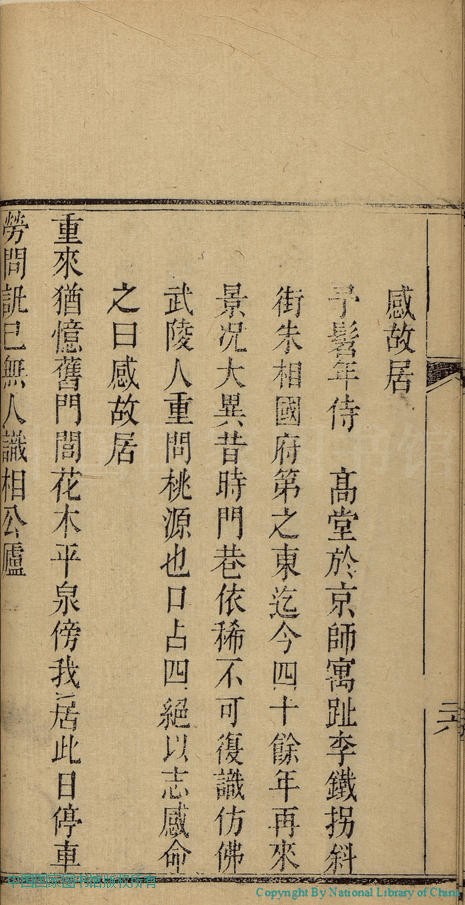 感故居
予髫年侍 高堂於京師寓趾李鐵拐斜
街朱相國府第之東迄今四十餘年再來
景况大異昔時門巷依稀不可復識仿佛
武陵人重問桃源也口占四絕以志感命
之曰感故居
重來猶憶舊門閭花木平泉傍我居此日停車
勞問訊已無人識相公廬
Copyright By National Library of China
中国国家图书馆版权所有